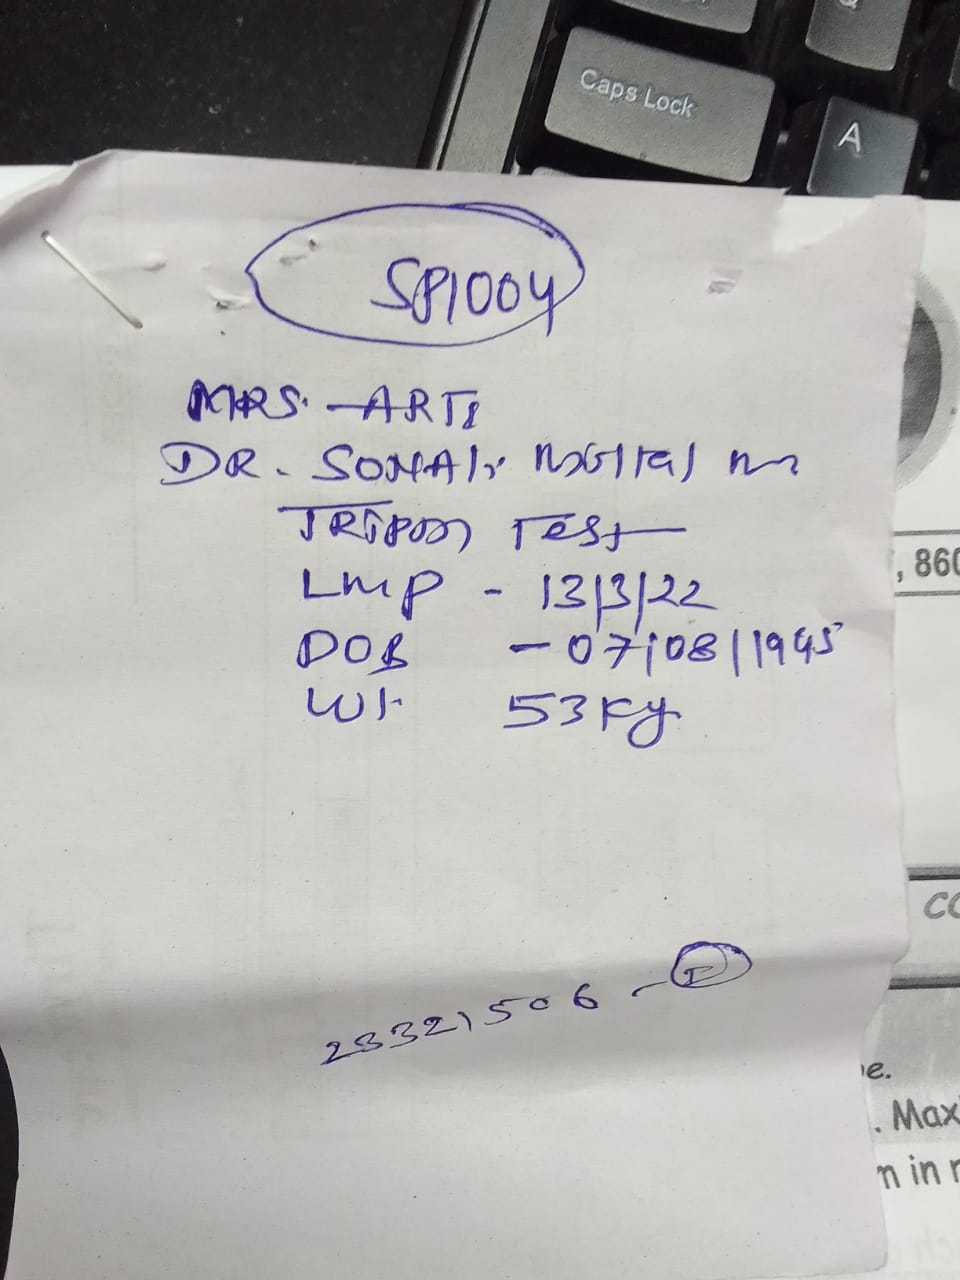 Caps Lock
A
SP1004
MRS. ARTI
DR. SONALI
TEST
, 860
LMP - 13/3/22
DOB - 07/08/1995
Wt. 53 Kg
CO
23321506 -
e.
. Max
m in r